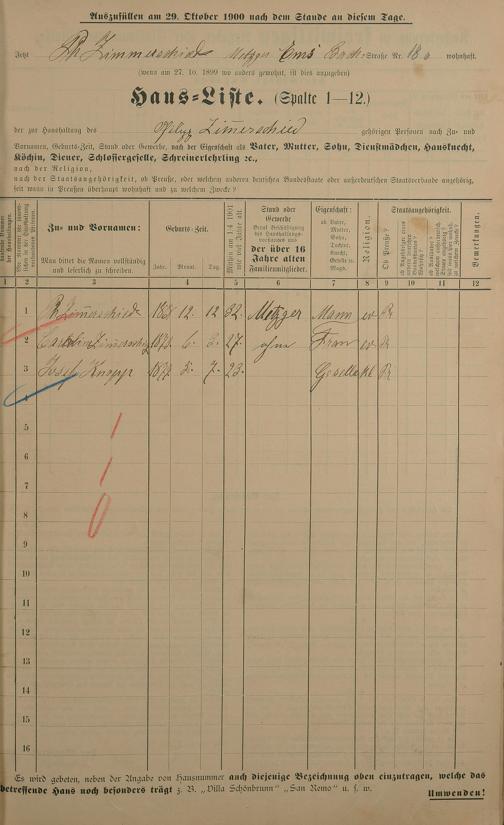 Auszufüllen am 29. Oktober 1900 nach dem Stande an diesem Tage.
Jetzt Ph Zimmerschied Metzger Ems Bach-Straße Nr. 18 wohnhaft.
(wenn am 27. 10. 1899 wo anders gewohnt, ist dies anzugeben)
Haus-Liste. (Spalte 1—12.)
der zur Haushaltung des Zimmerschied gehörigen Personen nach Zu- und
Vornamen, Geburts-Zeit, Stand oder Gewerbe, nach der Eigenschaft als Vater, Mutter, Sohn, Dienstmädchen, Hausknecht,
Köchin, Diener, Schlossergeselle, Schreinerlehrling ꝛc.,
nach der Religion,
nach der Staatsangehörigkeit, ob Preuße, oder welchem anderen deutschen Bundesstaate oder außerdeutschen Staatsverbande angehörig,
seit wann in Preußen überhaupt wohnhaft und zu welchem Zwecke?
Zu- und Vornamen:
Man bittet die Namen vollständig und leserlich zu schreiben.
Geburts-Zeit.
Jahr. Monat. Tag.
Stand oder Gewerbe
der über 16 Jahre alten Familienmitglieder.
Eigenschaft:
ob Vater, Mutter, Sohn, Tochter, Knecht, Geselle u. Magd.
Religion.
Staatsangehörigkeit.
Ob Preuße?
Bemerkungen.
1 2 3 4 5 6 7 8 9 10 11 12
1 Ph Zimmerschied 12 12 32. Metzger Mann ev Pr
2 Zimmerschied 6. 3. 27. ohne Frau ev Pr
3 Josef Knopp 7. 23. Geselle kl Pr
4
5
6
7
8
9
10
11
12
13
14
15
16
Es wird gebeten, neben der Angabe von Hausnummer auch diejenige Bezeichnung oben einzutragen, welche das
betreffende Haus noch besonders trägt z. B. „Villa Schönbrunn" „San Remo" u. s. w.
Umwenden!